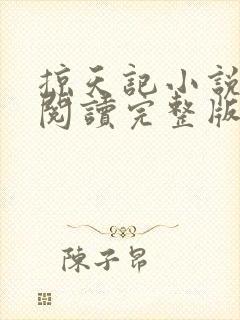 掠天記小說
閱讀完整版
陳子昂